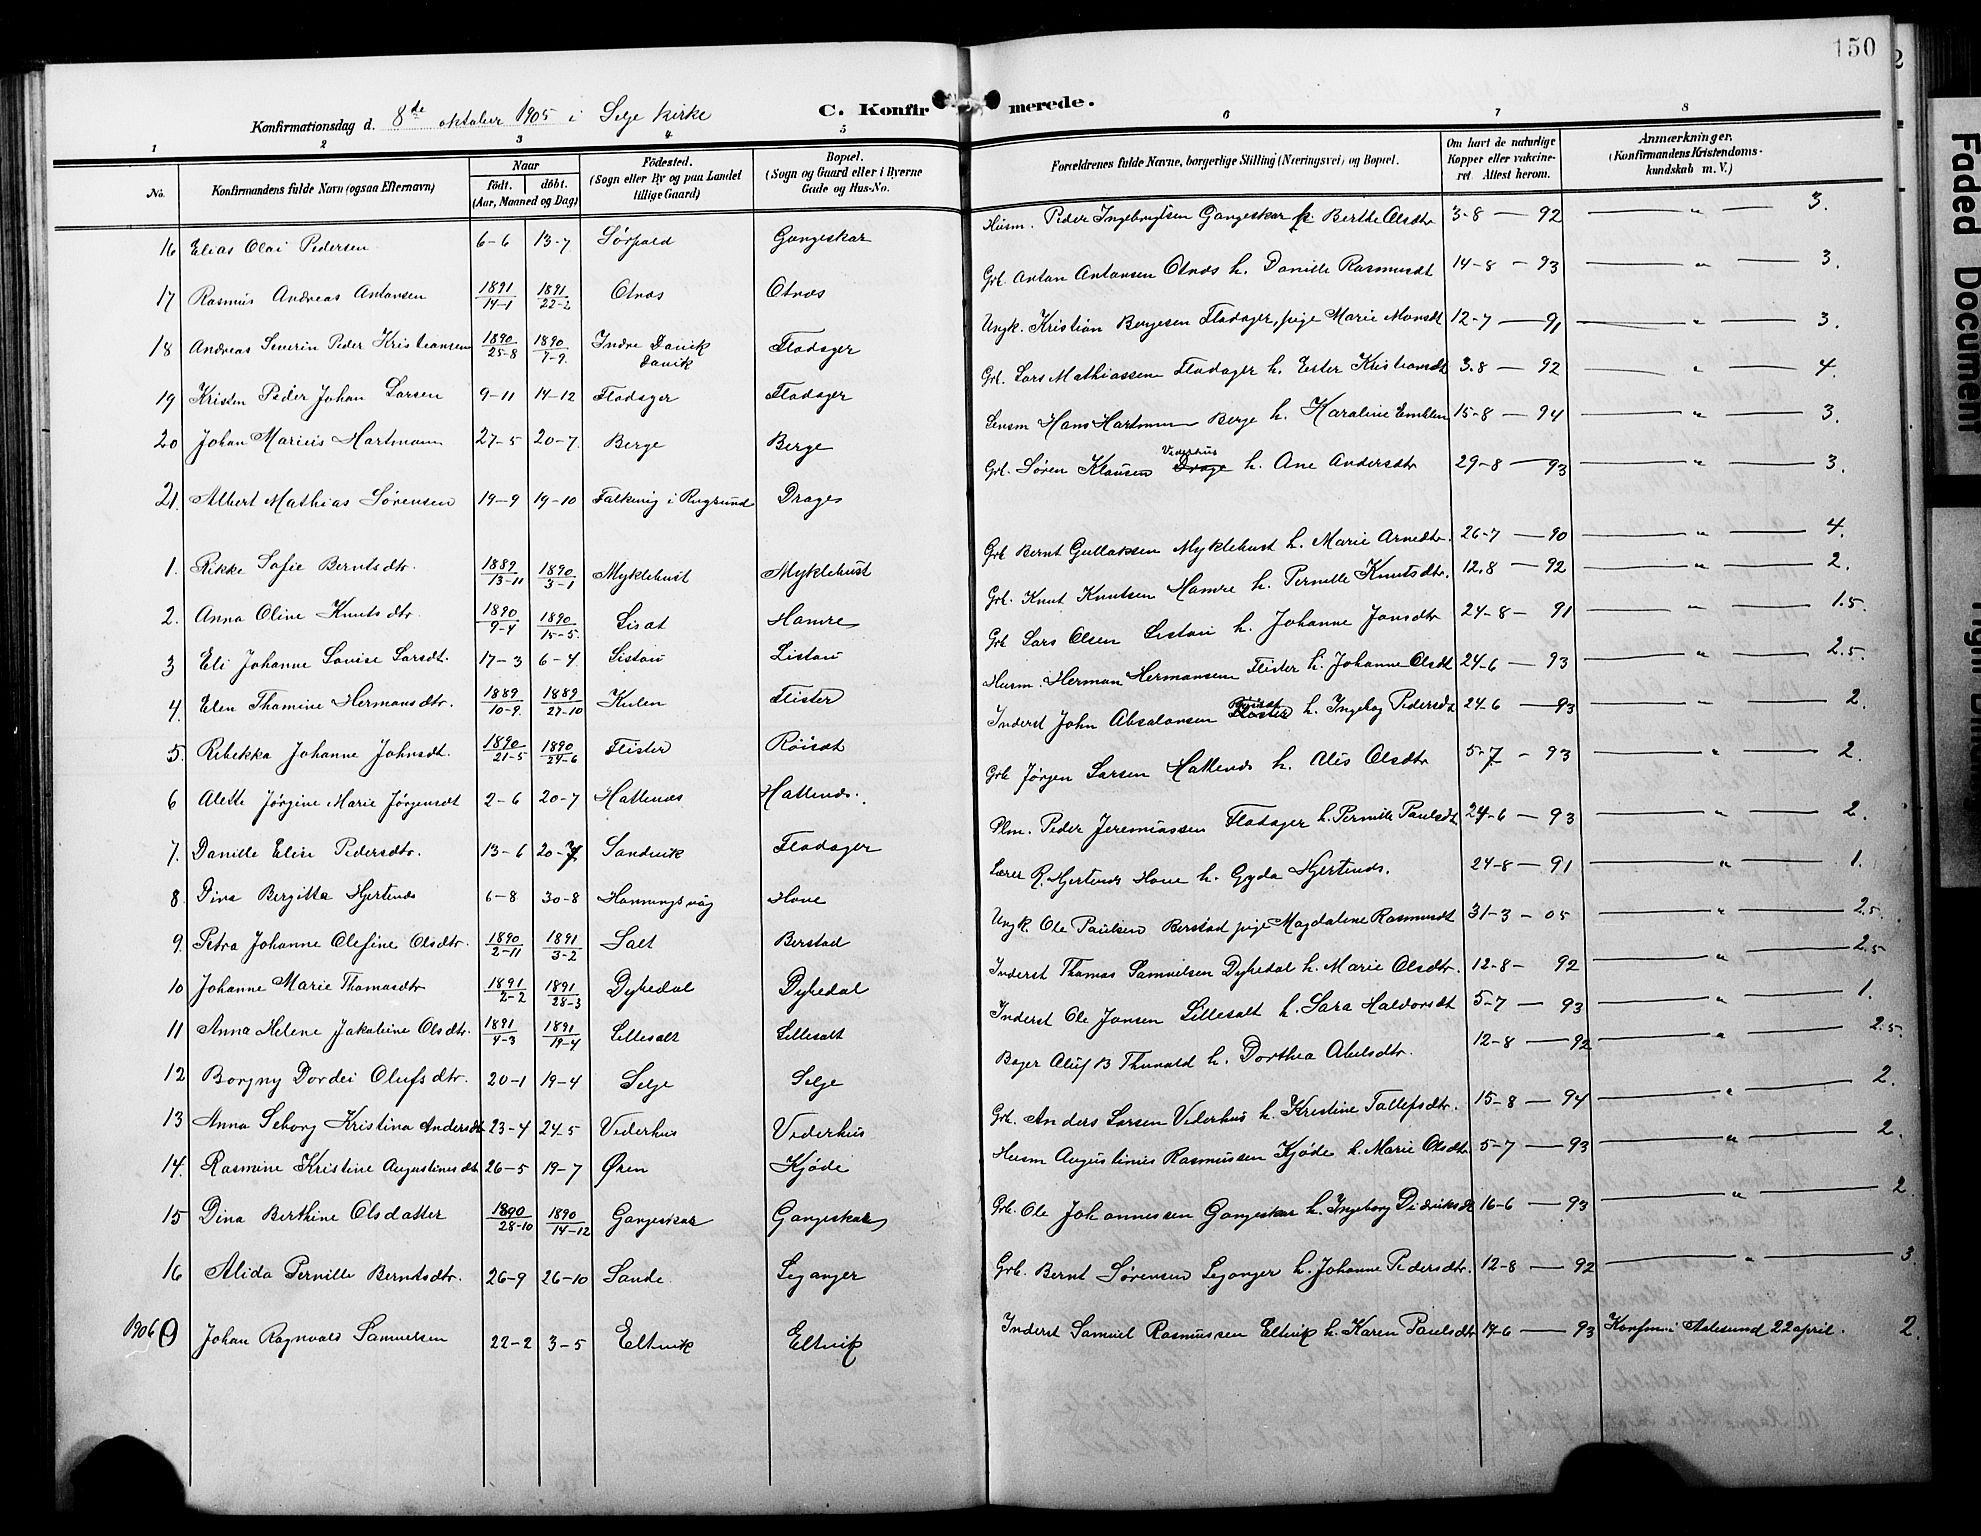 150
Konfirmationsdag d. 8de oktober 1905 i Selje kirke
C. Konfirmerede.
1 2 3 4 5 6 7 8
No. Konfirmandens fulde Navn (ogsaa Efternavn) Naar født. døbt. (Aar, Maaned og Dag) Fødested. (Sogn eller By og paa Landet tillige Gaard) Bopæl. (Sogn og Gaard eller i Byerne Gade og Hus-No. Forældrenes fulde Navne, borgerlige Stilling (Næringsvei) og Bopæl. Om havt de naturlige Kopper eller vakcineret. Attest herom. Anmærkninger. (Konfirmandens Kristendomskundskab m. V.)
16 Elias Olai Pedersen 6-6 13-7 Sørpold Gangeskar Husm. Peder Ingebrigtsen Gangeskar h. Berthe Olsdtr 3-8 — 92 — " — 3.
17 Rasmus Andreas Antonsen 1891 14-1 1891 22-2 Otnæs Otnæs Grb. Anton Antonsen Otnæs h. Danille Rasmusdt 14-8 — 93 — " — 3.
18 Andreas Severin Peder Kristiansen 1890 25-8 1890 7-9. Indre Davik Davik Flodager Ungk. Kristian Børgesen Flodager, pige Marie Monsdt 12-7 — 91 — " — 3.
19 Kristen Peder Johan Larsen 9-11 14-12 Flodager Flodager Grb. Lars Mathiassen Flodager h. Ester Kristiansdt 3-8 — 92 — " — 4.
20 Johan Marius Hartmann 27-5 20-7. Berge Berge Lensm Hans Hartmann Berge h. Karoline Emblem 15-8 — 94 — " — 3.
21. Albert Mathias Sørensen 19-9 19-10 Falkevig i Rugsund Drages Grb. Søren Klausen Drage Vederhus h. Ane Andersdtr 29-8 — 93 — " — 3.
1. Rikke Sofie Berntsdtr. 1889 13-11 1890 3-1 Myklebust Myklebust Grb Bernt Gullaksen Myklebust h. Marie Arnedtr. 26-7 — 90 — " — 4.
2. Anna Oline Knutsdtr 1890 9-4 1890 15-5. Lisat Hamre Grb. Knut Knutsen Hamre h. Pernille Knutsdtr. 12.8 — 92 — " — 2.
3 Eli Johanne Lovise Larsdt. 17-3 6-4. Listau Listau Grb Lars Olsen Listau h. Johanne Jonsdtr 24-8 — 91 — " — 1.5.
4. Elen Thomine Hermansdtr. 1889 10-9. 1889 27-10 Kulen Flister Husm. Herman Hermansen Flister h. Johanne Olsdt 24-6 — 93 — " — 2.5.
5. Rebekka Johanne Johnsdt. 1890 21-5 1890 24-6 Flister Røisat Inderst John Absalonsen Flister Røisat h. Ingebog Pedersdt 24-6 — 93 — " — 2.
6 Alette Jørgine Marie Jørgensdt 2-6 20-7 Hallenæs Hallenæs. Grb Jørgen Larsen Hallenæs h. Alis Olsdtr 5-7 - 93 — " — 2.
7. Danille Elise Pedersdtr. 13-6 20-7 Sandvik Flodager Plm. Peder Jeremiassen Flodager h. Pernille Paulsdt 24-6 — 93 — " — 2.
8. Dina Bergitta Hjertenæs 6-8 30-8 Honningsvåg Hove Lærer R. Hjertenæs Hove h. Gyda Hjertenæs. 24-8 — 91 — " — 1.
9. Petra Johanne Olefine Olsdtr. 1890 2-11 1891 3-2 Salt Berstad Ungk. Ole Paulsen Berstad pige Magdalene Rasmusdt 31-3 - 05 — " — 2.5.
10 Johanne Marie Thomasdtr 1891 2-2 1891 28-3 Dybedal Dybedal Inderst Thomas Samuelsen Dybedal h. Marie Olsdtr. 12-8 - 92 — " — 2.5
11 Anna Helene Jakobine Olsdtr. 1891 4-3 1891 19-4 Lillesalt Lillesalt Inderst Ole Jonsen Lillesalt h. Sara Haldorsdt 5-7 — 93 — " — 1.
12 Borgny Dordei Olufsdtr. 20-1 19-4 Selje Selje Bager Oluf B Thunold h. Dorthea Abelsdtr. 12-8 — 92 — " — 2.5
13 Anna Seborg Kristina Andersdt 23-4 24-5 Vederhus Vederhus Grb. Anders Larsen Vederhus h. Kristine Tollefsdtr. 15-8 — 94 — " — 2.
14. Rasmine Kristine Augustinusdt 26-5 19-7 Øren Kjøde Husm Augustinus Rasmussen Kjøde h. Marie Olsdtr 5-7 — 93 — " — 2.
15 Dina Berthine Olsdatter 1890 28-10 1890 14-12 Gangeskar Gangeskar Grb. Ole Johannessen Gangeskar h. Ingeborg Didriksdt 16-6 — 93 — " — 2.
16 Alida Pernille Berntsdtr. 26-9 26-10 Sande. Leganger Grb. Bernt Sørensen Leganger h. Johanne Pedersdtr. 12-8 — 92 — " — 3.
1906 Johan Ragnvald Samuelsen 22-2 3-5 Eltvik Eltvik Inderst Samuel Rasmussen Eltvik h. Karen Paulsdtr 14-6 — 93 Konfm i Aalesund 22 april. 2.
Faded Document